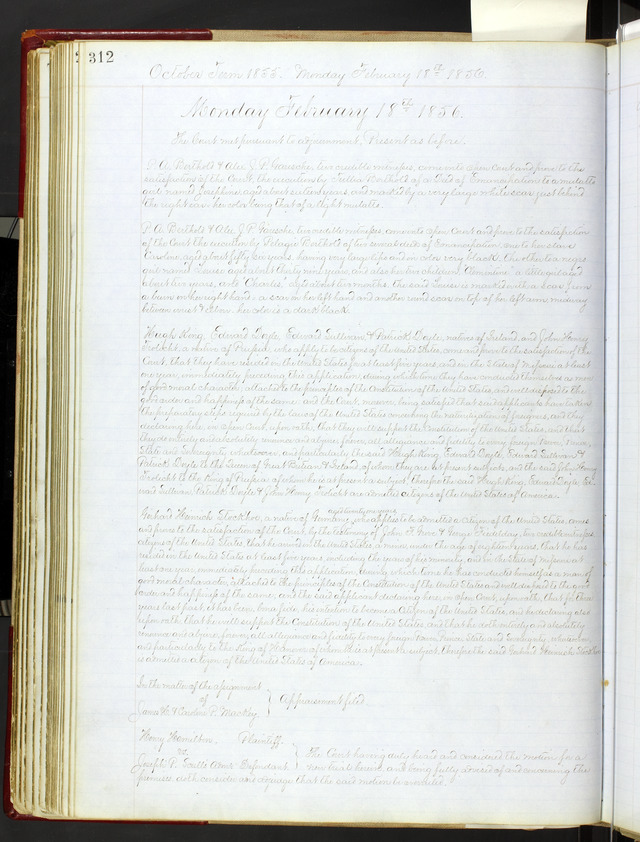 312
October Term 1855. Monday February 18th 1856.
Monday February 18th 1856.
The Court met pursuant to adjournment, Present as before.
P. A. Berthold & Alex. J. P. Garesche, two credible witnesses, come into open Court and prove to the
satisfaction of the Court, the execution by Berthold of a Deed of Emancipation to a mulatto
girl named Josephine aged about sixteen years and marked by a very large white scar just behind
the right ear her color being that of a light mulatto.
P. A. Berthold & Alex. J. P. Garesche, two credible witnesses, come into open Court and prove to the satisfaction
of the Court the execution by Pelagie Berthold of two several deeds of Emancipation, one to her slave
Caroline, aged about fifty six years, having very large lips and in color very black. The other to a negro
girl named Louise aged about thirty nine years, and also her two children, Clementine, a
about two years, and "Charles," aged about two months, the said Louise is marked with a scar from
a burn on her right hand, a scar on her left hand and another round scar on top of her left arm midway
between wrist & elbow. her color is a dark black.
Hugh King, Edward Doyle, Edward Sullivan, & Patrick Doyle, natives of Ireland, and John Henry
a native of Prussia, who apply to be citizens of the United States, come and prove to the satisfaction of the
Court, that they have resided in the United States at least five years, and in the State of Missouri at least
one year, immediately preceding this application, during which time they have conducted themselves as men
of good moral character, attached to the principles of the Constitution of the United States, and well disposed to the
good order and happiness of the same; and the Court moreover being satisfied that said applicants have taken
the preparatory steps required by the laws of the United States concerning the naturalization of foreigners, and they
declaring here, in open Court, upon oath, that they will support the Constitution of the United States, and that
they do entirely and absolutely renounce and abjure forever all allegiance and fidelity to every foreign Power, Prince,
State and Sovereignty whatsoever, and particularly the said Hugh King, Edward Doyle, Edward Sullivan &
Patrick Doyle to the Queen of Great Britain & Ireland, of whom they are at present subjects, and the said John Henry
to the King of Prussia, of whom he is at present a subject. Therefore the said Hugh King, Edward Doyle, Ed-
ward Sullivan, Patrick Doyle & John Henry are admitted citizens of the United States of America.
aged twenty one years
Gerhard Heinrich a native of Germany, who applies to be admitted a citizen of the United States, comes
and proves to the satisfaction of the Court, by the testimony of John F. & two credible witnesses
citizens of the United States, that he arrived in the United States a minor under the age of eighteen years, that he has
resided in the United States at least five years, including the time of his minority, and in the State of Missouri at
least one year, immediately preceding this application, during which time he has conducted himself as a man of
good moral character, attached to the principles of the Constitution of the United States and well disposed to the good
order and happiness of the same; and the said applicant declaring here, in open Court, upon oath, that for three
years last past, it has been, bona fide, his intention to become a Citizen of the United States, and he declaring also
upon oath that he will support the Constitution of the United States, and that he doth entirely and absolutely
renounce and abjure, forever, all allegiance and fidelity to every foreign Power, Prince, State and Sovereignty, whatsoever,
and particularly to the King of Hanover of whom he is at present a subject. Therefore the said Gerhard Heinrich
is admitted a citizen of the United States of America.
In the matter of the assignment
of
James W. & Caroline P. Mackey.
Appraisement filed.
Henry Hamilton, Plaintiff.
vs.
Joseph R. Defendant.
The Court having duly heard and considered the motion for a
new trial herein, and being fully advised of and concerning the
premises doth consider and adjudge that the said motion be overruled.